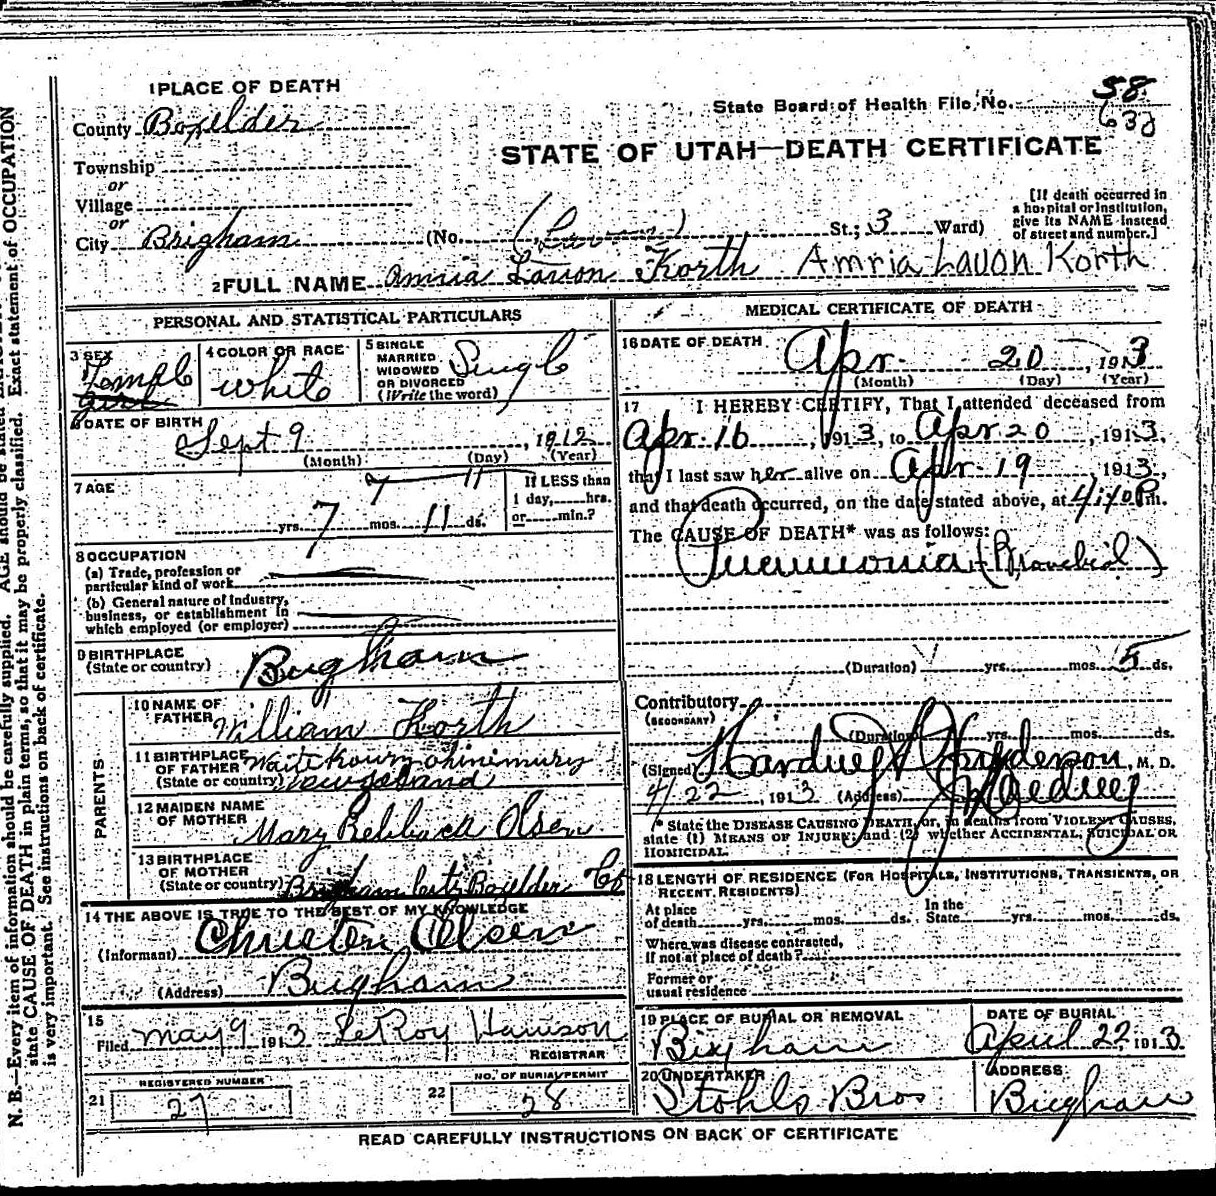 1 PLACE OF DEATH
State Board of Health File No. 58
632
County Boxelder
STATE OF UTAH—DEATH CERTIFICATE
Township
or
Village
or
City Brigham (No. St.; 3 Ward)
[If death occurred in
a hospital or institution,
give its NAME instead
of street and number.]
2 FULL NAME Amria Lavon Korth Amria Lavon Korth
PERSONAL AND STATISTICAL PARTICULARS
3 SEX
Female
girl
4 COLOR OR RACE
White
5 SINGLE
MARRIED
WIDOWED
OR DIVORCED
(Write the word)
Single
6 DATE OF BIRTH
Sept 9, 1912
(Month) (Day) (Year)
7 AGE
7 11
7 yrs. mos. 11 ds.
If LESS than
1 day, hrs.
or min.?
8 OCCUPATION
(a) Trade, profession or
particular kind of work
(b) General nature of industry,
business, or establishment in
which employed (or employer)
9 BIRTHPLACE
(State or country)
Brigham
PARENTS
10 NAME OF
FATHER
William Korth
11 BIRTHPLACE
OF FATHER
(State or country)
12 MAIDEN NAME
OF MOTHER
Mary Olsen
13 BIRTHPLACE
OF MOTHER
(State or country)
Brigham City Boxelder Co
14 THE ABOVE IS TRUE TO THE BEST OF MY KNOWLEDGE
(Informant) Olsen
(Address) Brigham
15
Filed May 9 1913 LeRoy Harrison
REGISTRAR
REGISTERED NUMBER
21 27
NO. OF BURIAL PERMIT
22 28
MEDICAL CERTIFICATE OF DEATH
16 DATE OF DEATH
Apr 20, 1913
(Month) (Day) (Year)
17 I HEREBY CERTIFY, That I attended deceased from
Apr 16, 1913, to Apr 20, 1913,
that I last saw her alive on Apr 19, 1913,
and that death occurred, on the date stated above, at m.
The CAUSE OF DEATH* was as follows:
Pneumonia (Bronchial)
(Duration) yrs. mos. 5 ds.
Contributory
(SECONDARY)
(Duration) yrs. mos. ds.
(Signed) M. D.
4/22, 1913 (Address)
* State the DISEASE CAUSING DEATH, or, in deaths from VIOLENT CAUSES,
state (1) MEANS OF INJURY; and (2) whether ACCIDENTAL, SUICIDAL OR
HOMICIDAL.
18 LENGTH OF RESIDENCE (FOR HOSPITALS, INSTITUTIONS, TRANSIENTS, OR
RECENT RESIDENTS)
At place
of death yrs. mos. ds.
In the
State yrs. mos. ds.
Where was disease contracted,
if not at place of death?
Former or
usual residence
19 PLACE OF BURIAL OR REMOVAL
Brigham
DATE OF BURIAL
April 22 1913
20 UNDERTAKER
Stohls Bros
ADDRESS
Brigham
READ CAREFULLY INSTRUCTIONS ON BACK OF CERTIFICATE
N. B.—Every item of information should be carefully supplied. AGE should be stated Exact statement of OCCUPATION
state CAUSE OF DEATH in plain terms, so that it may be properly classified.
is very important. See instructions on back of certificate.